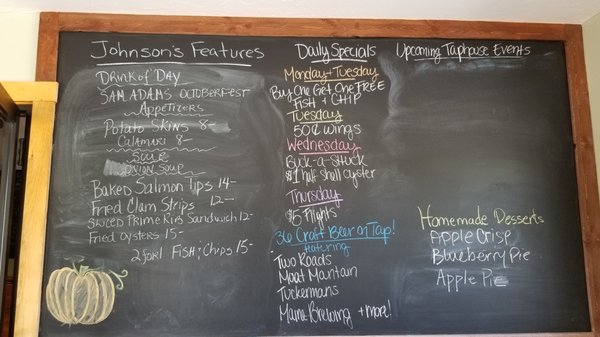 Johnson's Features
Drink of Day
SAM ADAMS OCTOBERFEST
Appetizers
Potato Skins 8-
Calamari 8-
Soup
Onion Soup
Baked Salmon Tips 14-
Fried Clam Strips 12-
Sliced Prime Rib Sandwich 12-
Fried Oysters 15-
2 for 1 Fish & Chips 15-
Daily Specials
Monday + Tuesday
Buy One Get One FREE
Fish & Chip
Tuesday
50¢ Wings
Wednesday
Buck-a-Shuck
$1 half shell oyster
Thursday
$5 Flights
36 Craft Beer on Tap!
featuring
Two Roads
Moat Mantain
Tuckermans
Maine Brewing + more!
Upcoming Taphouse Events
Homemade Desserts
Apple Crisp
Blueberry Pie
Apple Pie